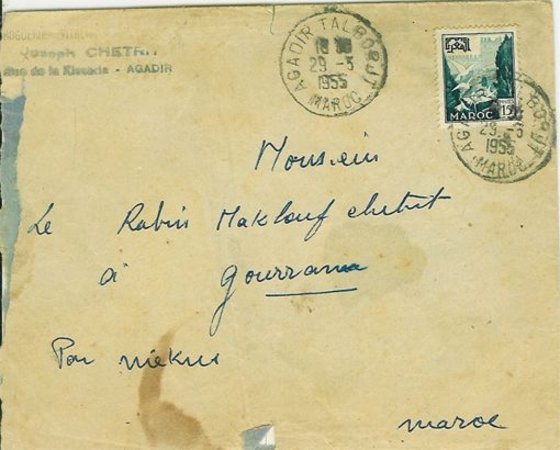 Joseph CHETRIT
Rue de la Kissaria - AGADIR
AGADIR TALBORJT
29 -3
1955
MAROC
المغرب
MAROC
15F
AGADIR TALBORJT
29 -3
1955
MAROC
Monsieur
Le Rabin Maklouf chetrit
à Gourrama
Par
maroc